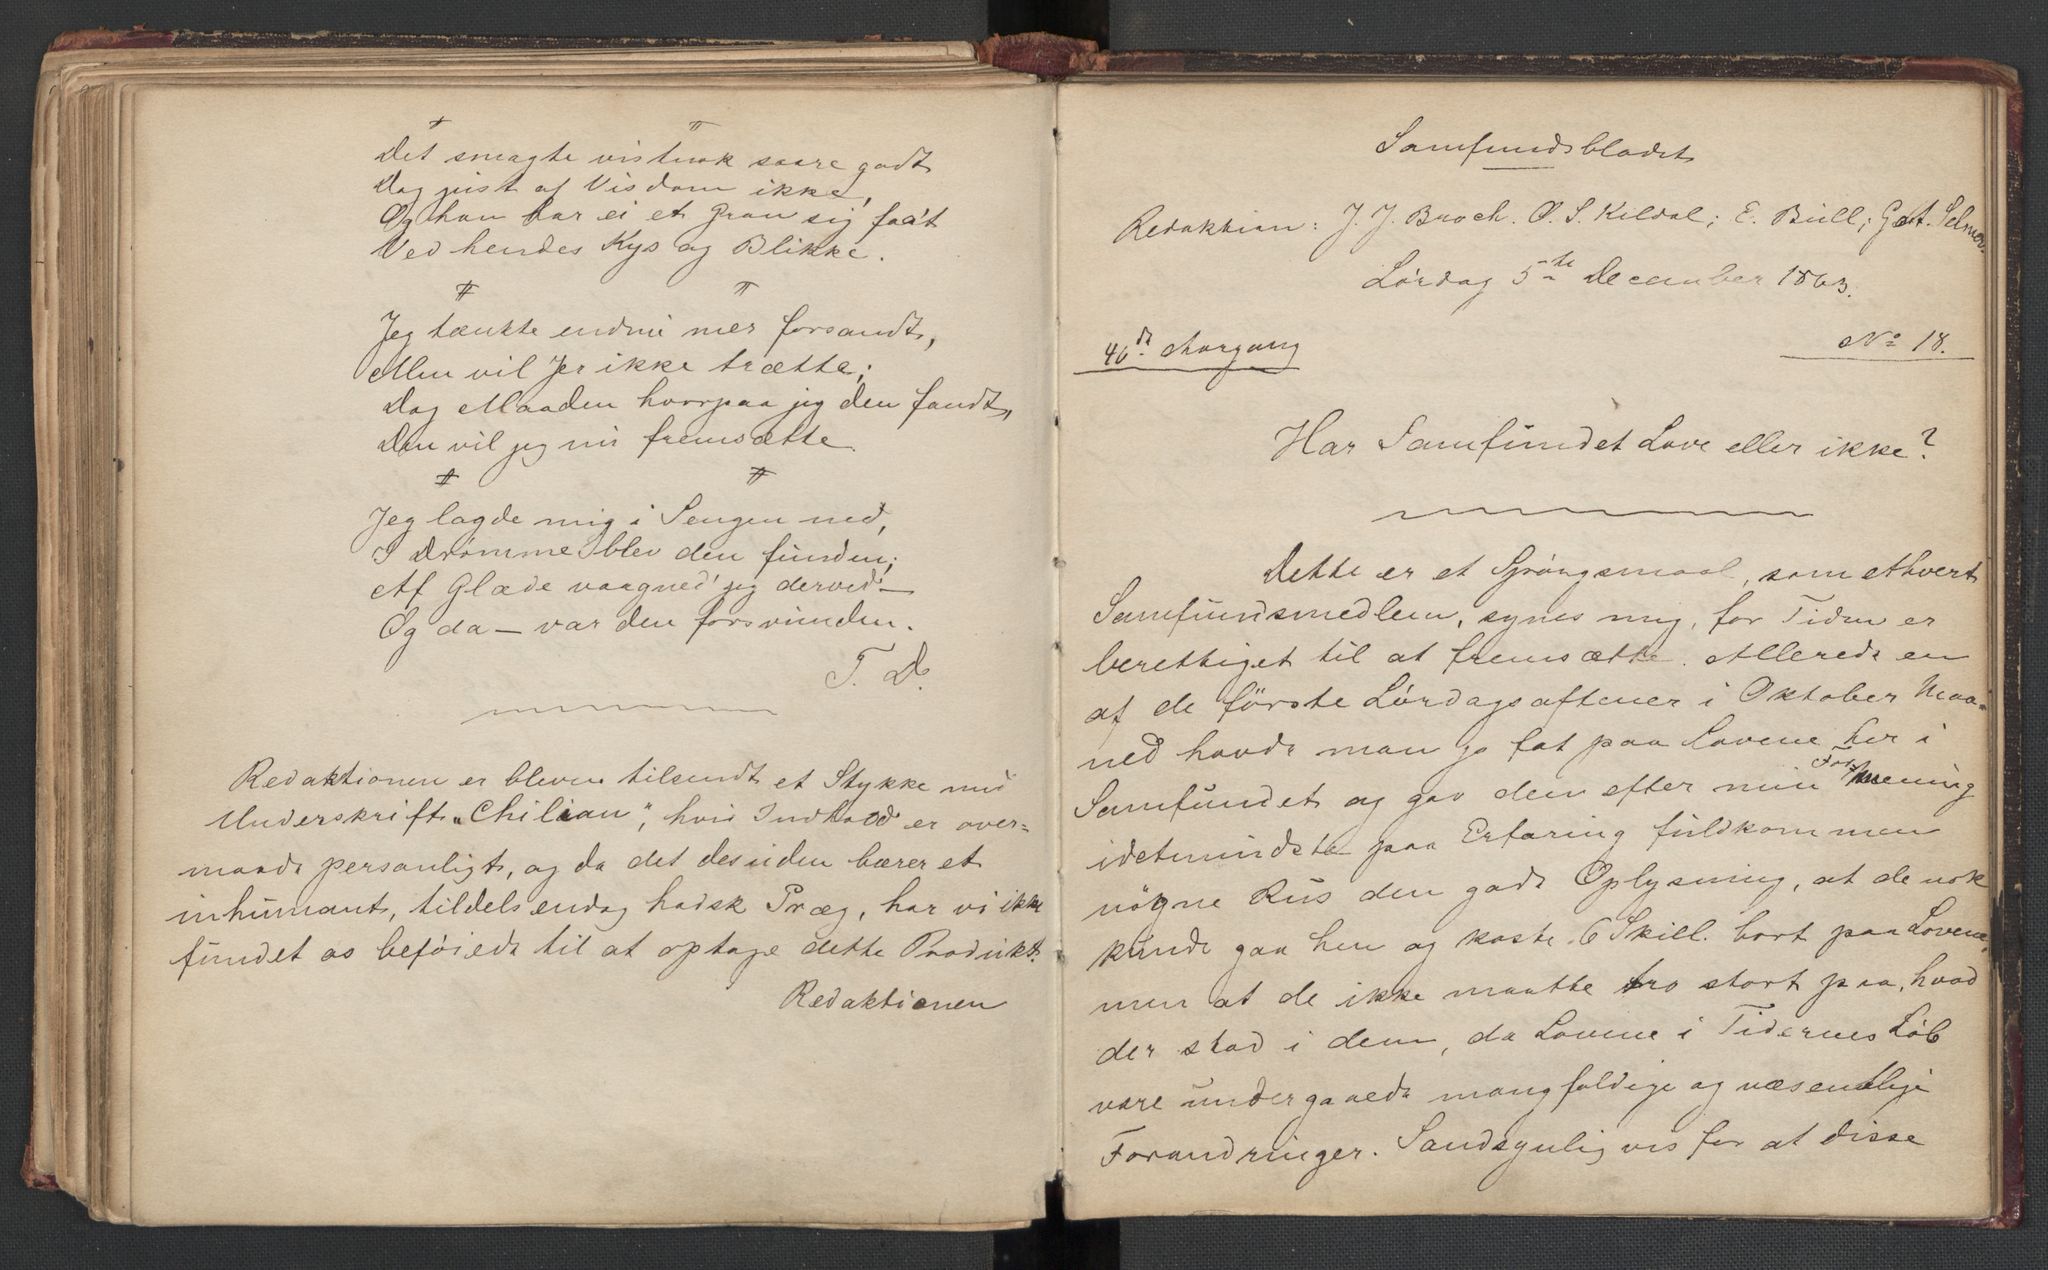 Det smagte vistnok saare godt
Dog just af Visdom ikke,
Og han har ei et Gran sig faa't
Ved hendes Kys og Blikke.
Jeg tænkte endnu mer forsandt,
Men vil Jer ikke trætte;
Dog Maaden hvorpaa jeg den fandt,
Den vil jeg nu fremsætte
Jeg lagde mig i Sengen ned,
I Drømme blev den funden;
Af Glæde vaagned' jeg derved —
Og da — var den forsvunden.
T. D.
Redaktionen er bleven tilsendt et Stykke med
Underskrift „Chilian", hvis Indhold er over-
maade personligt, og da det desuden bærer et
inhumant, tildels endog hadsk Præg, har vi ikke
fundet os beføiede til at optage dette Produkt.
Redaktionen
Samfundsbladet
Redaktion: J. J. Broch. O. S. Kildal; E. Bull; Gst. Selmer.
Lørdag 5te December 1863.
46de Aargang
No 18.
Har Samfundet Love eller ikke?
Dette er et Spørgsmaal, som ethvert
Samfundsmedlem, synes mig, for Tiden er
berettiget til at fremsætte. Allerede en
af de første Lørdagsaftener i Oktober Maa-
ned havde man jo fat paa Lovene her i
Samfundet og gav den efter min Formening
idetmindste paa Erfaring fuldkommen
nøgne Rus den gode Oplysning, at de nok
kunde gaa hen og kaste 6 Skill. bort paa Lovene,
men at de ikke maatte tro stort paa, hvad
der stod i dem, da Lovene i Tidernes Løb
vare undergaaede mangfoldige og væsentlige
Forandringer. Sandsynligvis for at disse